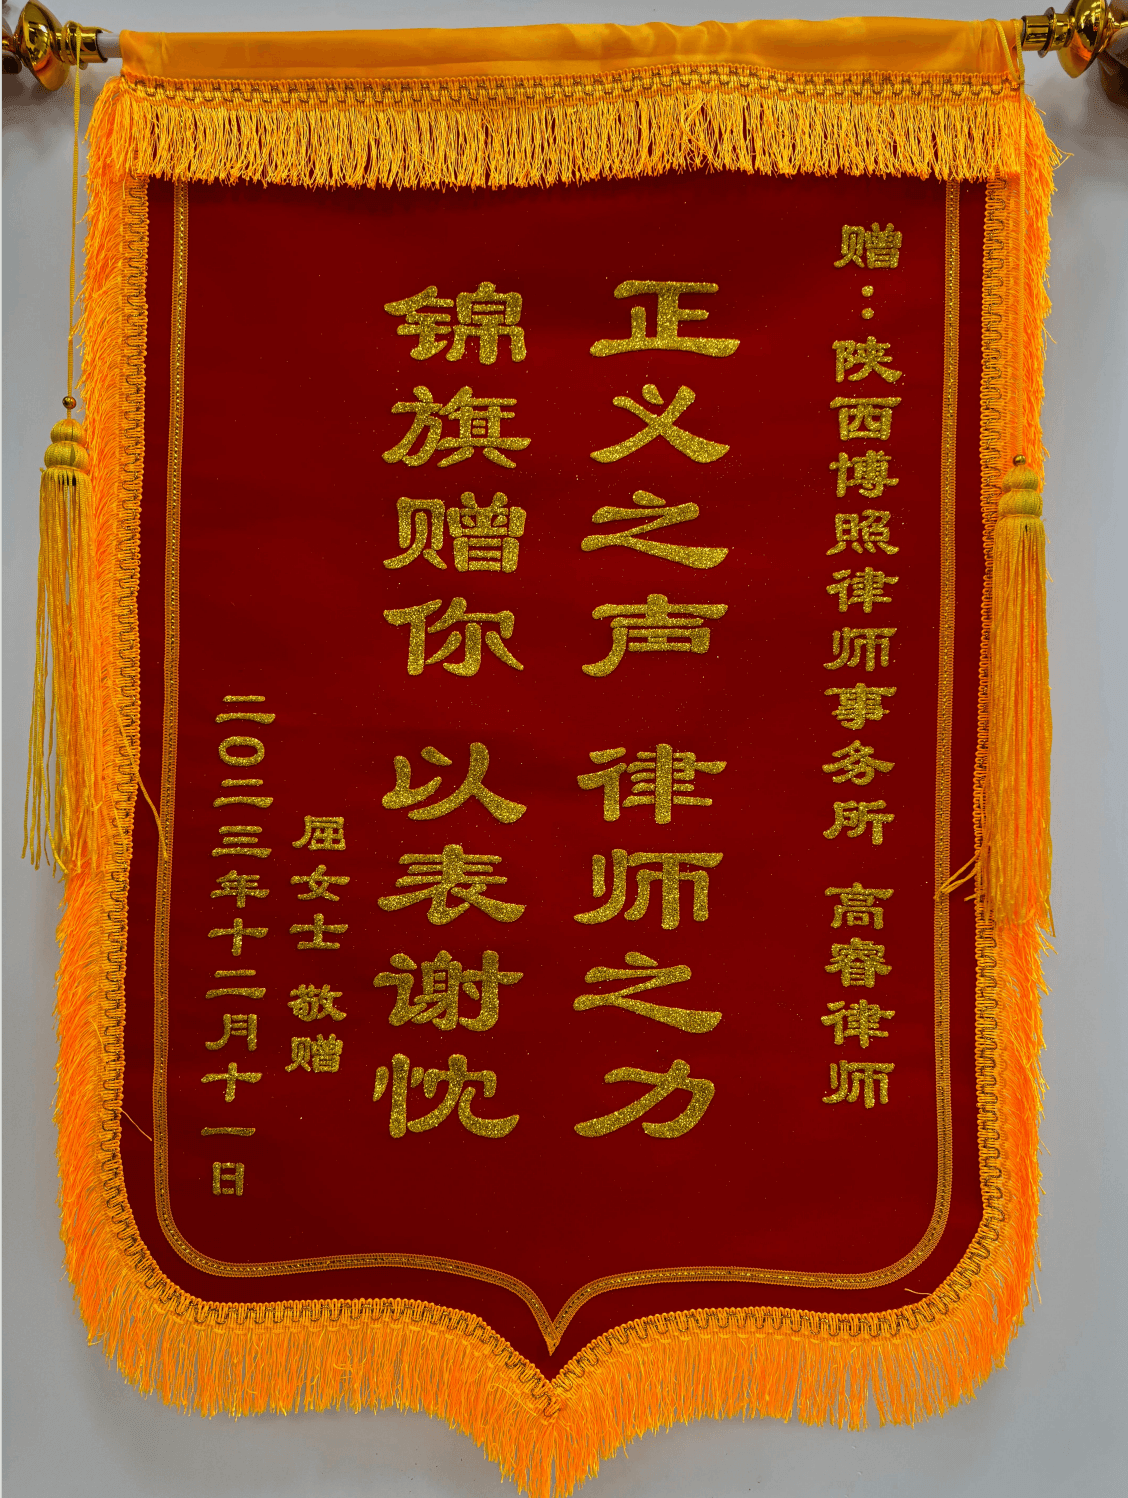 赠：陕西博照律师事务所 高睿律师
正义之声 律师之力
锦旗赠你 以表谢忱
屈女士 敬赠
二〇二三年十二月十一日